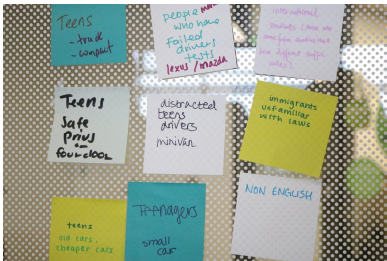 Teens
- truck
- compact
people
who have
failed
drivers
tests
lexus / mazda
international
students
Teens
safe
Prius
or
four door
distracted
teens
drivers
minivan
immigrants
unfamiliar
with laws
teens
old cars,
cheaper cars
Teenagers
small
car
NON ENGLISH